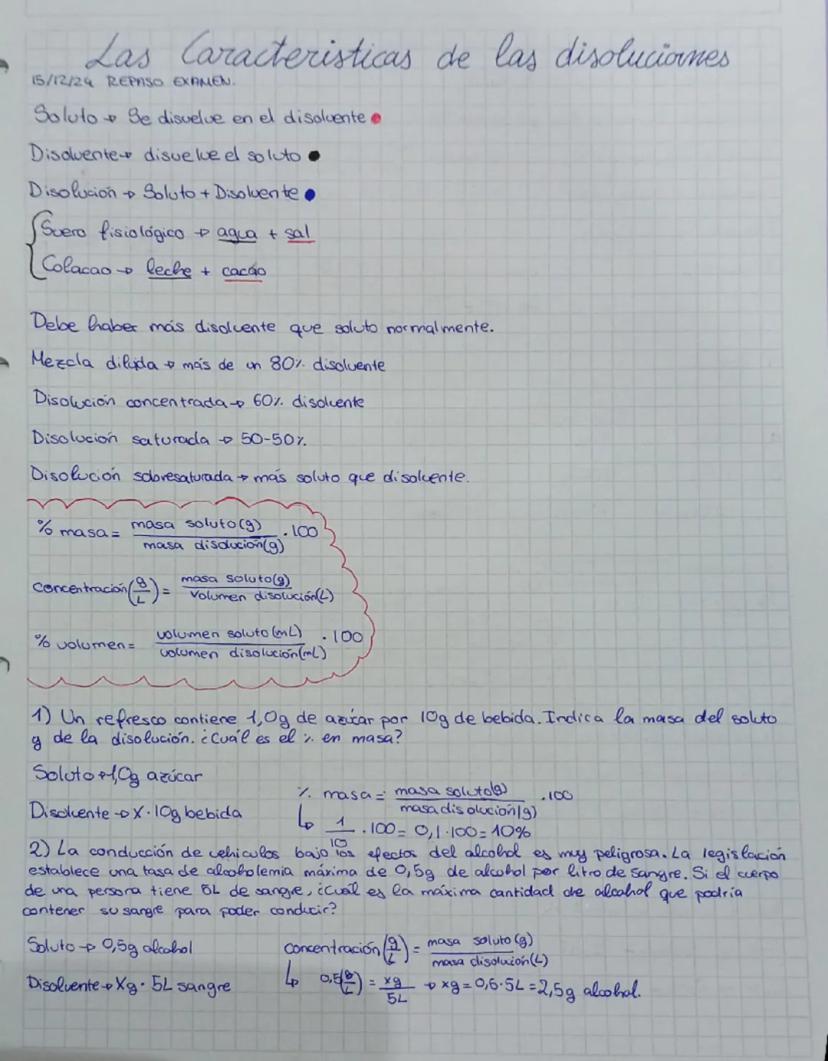 Las Caracteristicas de las disoluciones
15/12/24 REPASO EXAMEN.
Soluto → Se disuelve en el disolvente
Disolvente → disuelve el soluto
Disolución → Soluto + Disolvente
Suero fisiológico → agua + sal
Colacao → leche + cacao
Debe haber más disolvente que soluto normalmente.
Mezcla diluida → más de un 80% disolvente
Disolución concentrada → 60% disolvente
Disolución saturada → 50-50%.
Disolución sobresaturada → más soluto que disolvente.
% masa = masa soluto(g) / masa disolución(g) · 100
Concentración (g/L) = masa soluto(g) / Volumen disolución(L)
% volumen = volumen soluto (mL) / volumen disolución(mL) · 100
1) Un refresco contiene 1,0g de azúcar por 10g de bebida. Indica la masa del soluto
y de la disolución. ¿Cuál es el % en masa?
Soluto → 1,0g azúcar
% masa = masa soluto(g) / masa disolución(g) · 100
Disolvente → X · 10g bebida
↳ 1/10 · 100 = 0,1 · 100 = 10%
2) La conducción de vehiculos bajo los efectos del alcohol es muy peligrosa. La legislación
establece una tasa de alcoholemia máxima de 0,5g de alcohol por litro de sangre. Si el cuerpo
de una persona tiene 5L de sangre, ¿cuál es la máxima cantidad de alcohol que podría
contener su sangre para poder conducir?
Soluto → 0,5g alcohol
concentración (g/L) = masa soluto (g) / masa disolución(L)
Disolvente → Xg · 5L sangre
↳ 0,5(g/L) = xg / 5L → xg = 0,5 · 5L = 2,5g alcohol.